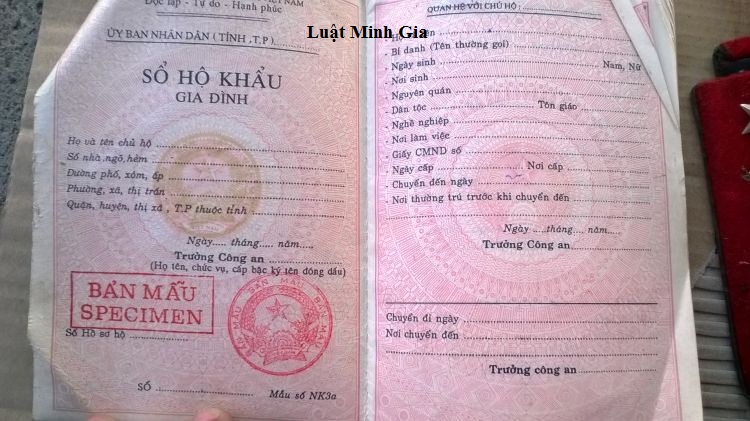 Luật Minh Gia
VIỆT NAM
Độc lập - Tự do - Hạnh phúc
ỦY BAN NHÂN DÂN (TỈNH .T.P)
SỔ HỘ KHẨU
GIA ĐÌNH
Họ và tên chủ hộ
Số nhà ,ngõ, hẻm
Đường phố, xóm, ấp
Phường, xã, thị trấn
Quận, huyện, thị xã , T.P thuộc tỉnh
Ngày..... tháng..... năm.....
Trưởng Công an
(Họ tên, chức vụ, cấp bậc ký tên đóng dấu)
BẢN MẪU
SPECIMEN
BẢN MẪU BẢN MẪU
Số Hồ sơ hộ
SỐ
Mẫu số NK3a
QUAN HỆ VỚI CHỦ HỘ
. Họ tên
. Bí danh (Tên thường gọi)
. Ngày sinh Nam, Nữ
. Nơi sinh
. Nguyên quán
. Dân tộc Tôn giáo
. Nghề nghiệp
. Nơi làm việc
. Giấy CMND số
. Ngày cấp Nơi cấp
. Chuyển đến ngày
Nơi thường trú trước khi chuyển đến
Ngày .....tháng..... năm
Trưởng Công an
Chuyển đi ngày
Nơi chuyển đến
Trưởng công an